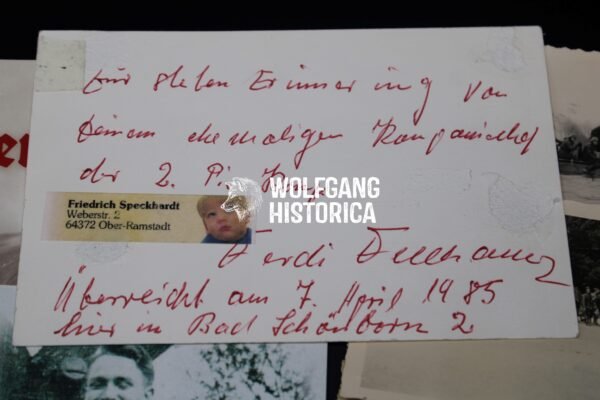 er
Zur steten Erinnerung von
Deinem ehemaligen Kompaniechef
der 2. Pi.
WOLFGANG
HISTORICA
Friedrich Speckhardt
Weberstr. 2
64372 Ober-Ramstadt
Ferdi
Überreicht am 7. April 1985
hier in Bad Schönborn 2